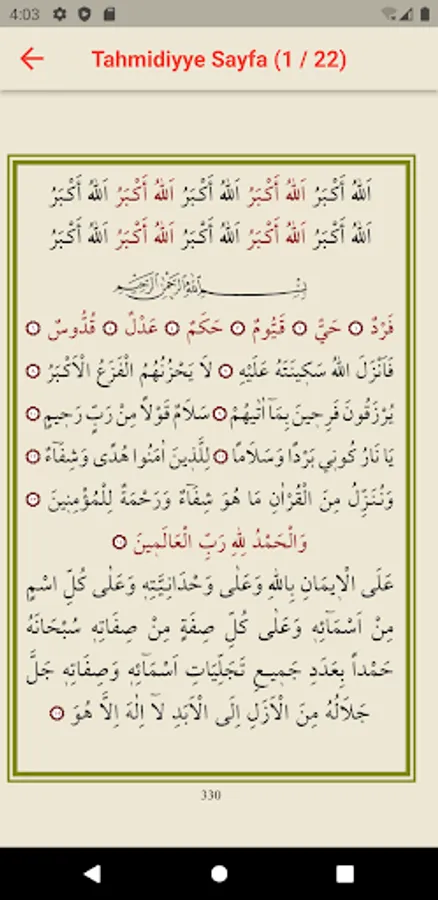 4:03
Tahmidiyye Sayfa (1 / 22)
اَللّٰهُ أَكْبَرُ اَللّٰهُ أَكْبَرُ اَللّٰهُ أَكْبَرُ اَللّٰهُ أَكْبَرُ اَللّٰهُ أَكْبَرُ
اَللّٰهُ أَكْبَرُ اَللّٰهُ أَكْبَرُ اَللّٰهُ أَكْبَرُ اَللّٰهُ أَكْبَرُ اَللّٰهُ أَكْبَرُ
بِسْمِ اللّٰهِ الرَّحْمٰنِ الرَّحِيمِ
فَرْدٌ ۞ حَيٌّ ۞ قَيُّومٌ ۞ حَكَمٌ ۞ عَدْلٌ ۞ قُدُّوسٌ ۞
فَاَنْزَلَ اللّٰهُ سَكِينَتَهُ عَلَيْهِ ۞ لَا يَحْزُنُهُمُ الْفَزَعُ الْاَكْبَرُ ۞
يُرْزَقُونَ فَرِحِينَ بِمَٓا اٰتٰيهُمْ ۞ سَلَامٌ قَوْلًا مِنْ رَبٍّ رَحِيمٍ ۞
يَا نَارُ كُونِي بَرْدًا وَسَلَامًا ۞ لِلَّذِينَ اٰمَنُوا هُدًى وَشِفَٓاءٌ ۞
وَنُنَزِّلُ مِنَ الْقُرْاٰنِ مَا هُوَ شِفَٓاءٌ وَرَحْمَةٌ لِلْمُؤْمِنِينَ ۞
وَالْحَمْدُ لِلّٰهِ رَبِّ الْعَالَمِينَ ۞
عَلَى الْاِيمَانِ بِاللّٰهِ وَعَلٰى وَحْدَانِيَّتِهِ وَعَلٰى كُلِّ اسْمٍ
مِنْ اَسْمَٓائِهِ وَعَلٰى كُلِّ صِفَةٍ مِنْ صِفَاتِهِ سُبْحَانَهُ
حَمْداً بِعَدَدِ جَمِيعِ تَجَلِّيَاتِ اَسْمَٓائِهِ وَصِفَاتِهِ جَلَّ
جَلَالُهُ مِنَ الْاَزَلِ اِلَى الْاَبَدِ لَٓا اِلٰهَ اِلَّا هُوَ ۞
330